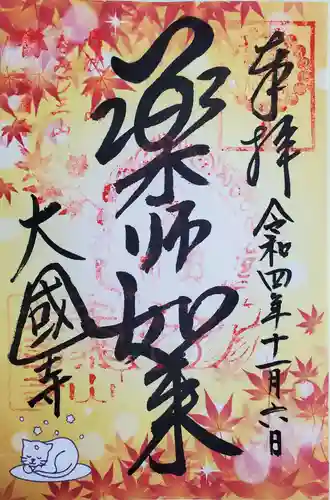 奉拝
令和四年十一月六日
薬師如来
大國寺